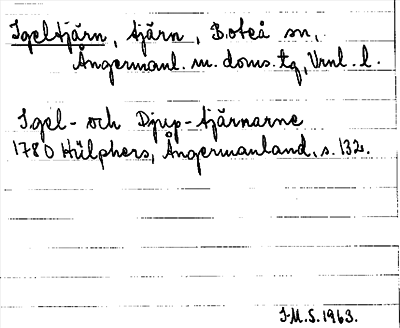 Igeltjärn, tjärn, Boteå sn,
Ångermanl. m. doms. tg, Vrnl. l.
Igel- och Djup-tjärnarne
1780 Hülphers, Ångermanland, s. 132.
I.M.S. 1963.